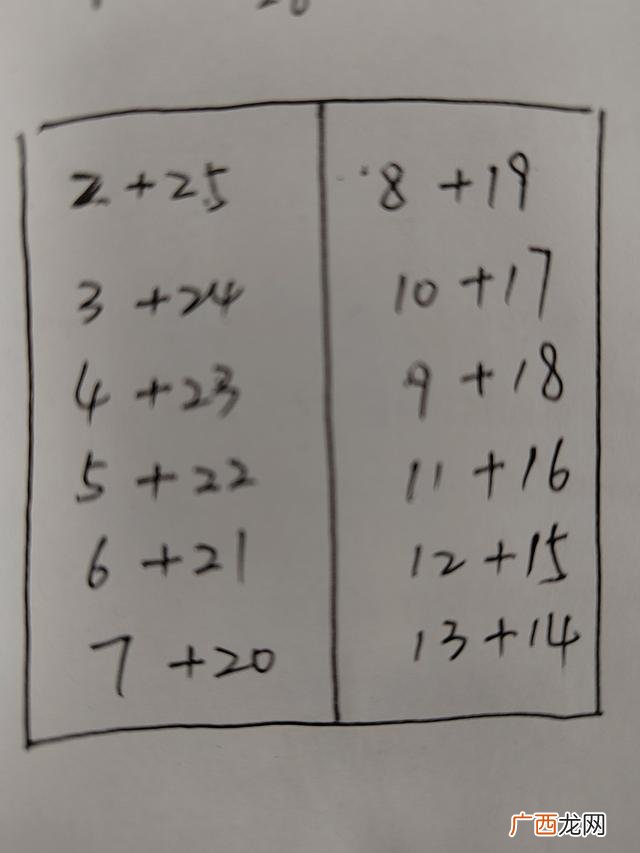 2 + 25
3 + 24
4 + 23
5 + 22
6 + 21
7 + 20
8 + 19
10 + 17
9 + 18
11 + 16
12 + 15
13 + 14
广西龙网